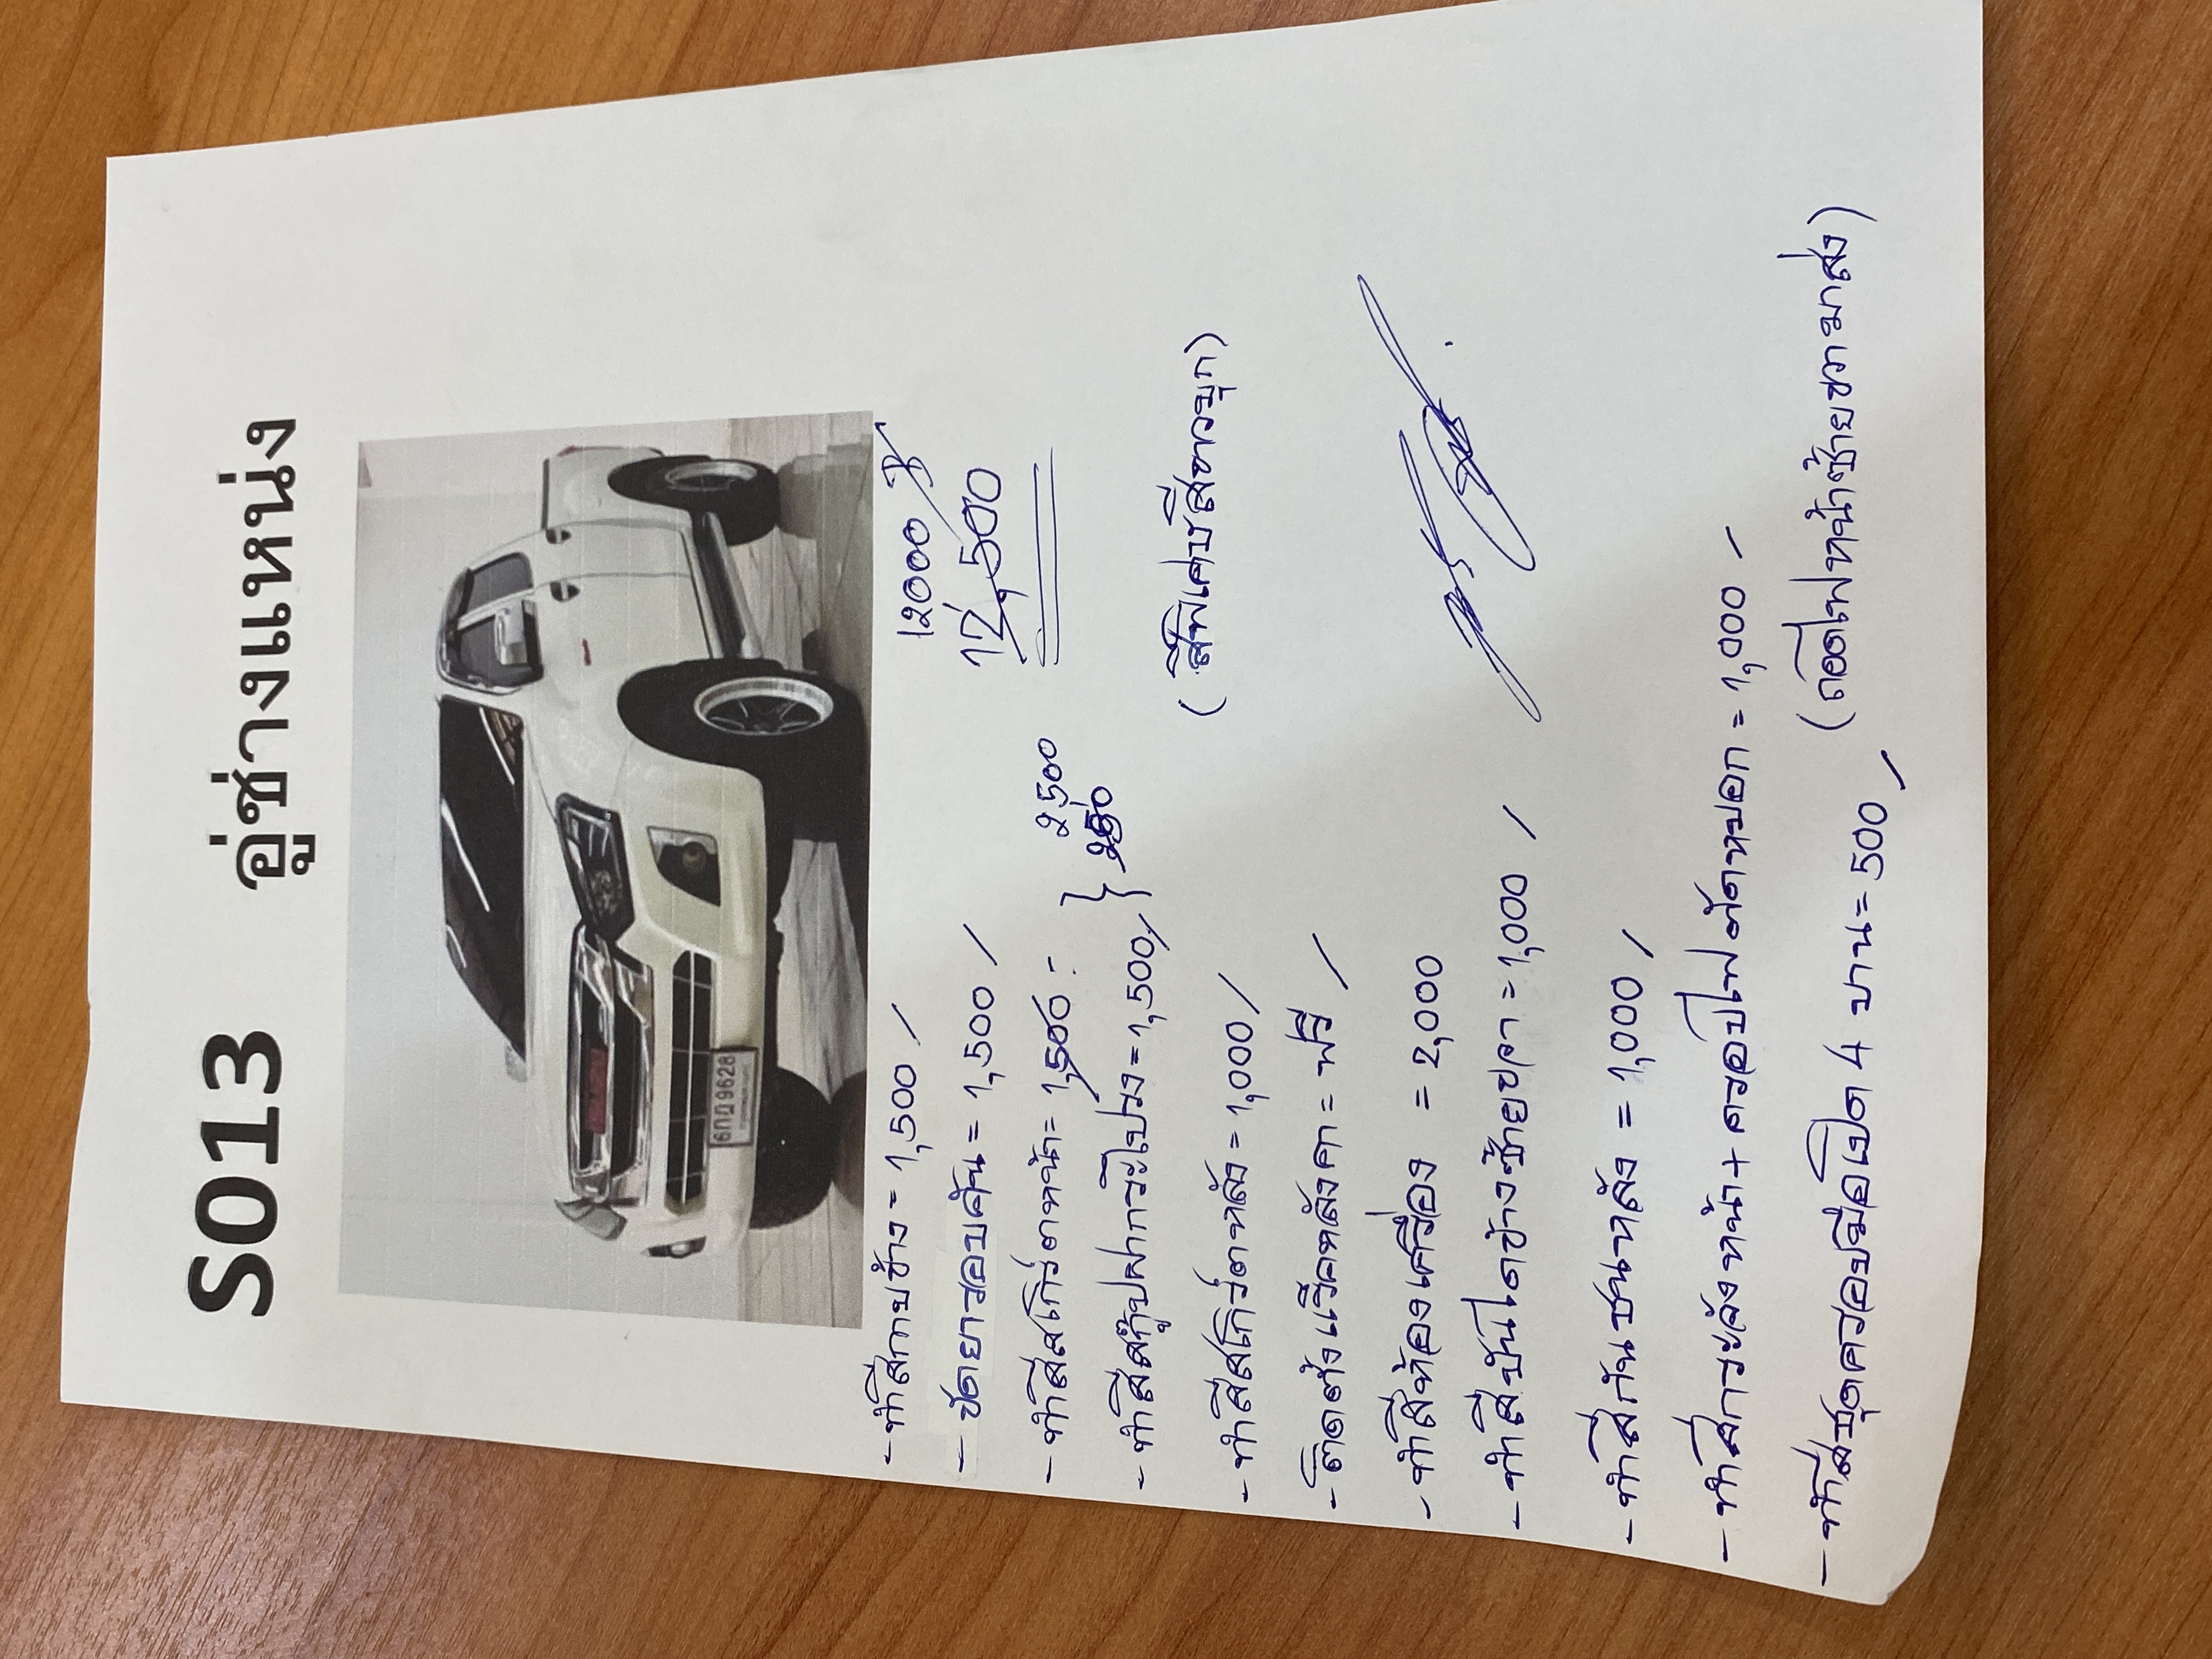 S013 อู่ช่างแหน่ง
6กฎ9628
- ทำสีกาบข้าง = 1,500 /
12000
- ขัดยารอบคัน = 1,500 /
12,500
- ทำสีสเกิร์ตหน้า = 1,500 :
} 2500
- ทำสีสคู๊ปฝากระโปรง = 1,500 /
- ทำสีสเกิร์ตหลัง = 1,000 /
(สีพิเศษสีขาวมุก)
- ติดตั้งแร็คหลังคา = ฟรี /
- ทำสีห้องเครื่อง = 2,000
- ทำสีบันไดข้างซ้ายขวา = 1,000 /
- ทำสีกันชนหลัง = 1,000 /
- ทำสีกระจังหน้า + ครอบไฟตัดหมอก = 1,000 /
- ทำสีชุดครอบมือเปิด 4 บาน = 500 /
(ถอดไฟหน้าซ้ายขวามาส่ง)